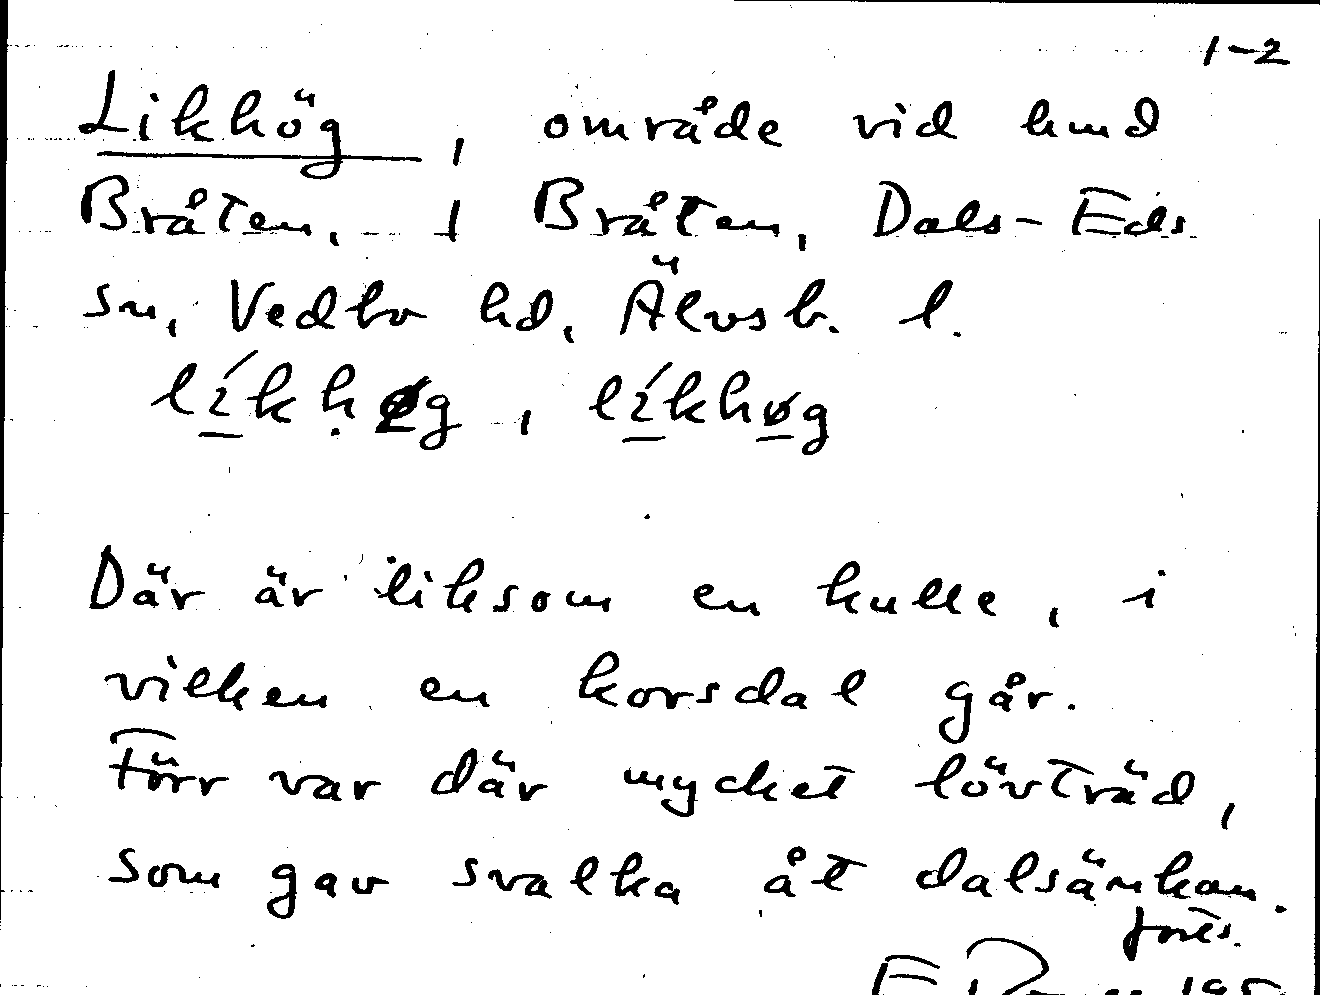 1-2
Likhög, område vid hmd
Bråten, 1 Bråten, Dals-Eds
sn, Vedbo hd, Älvsb. l.
líkhøg, líkhøg
Där är liksom en kulle, i
vilken en korsdal går.
Förr var där mycket lövträd,
som gav svalka åt dalsänkan.
forts.